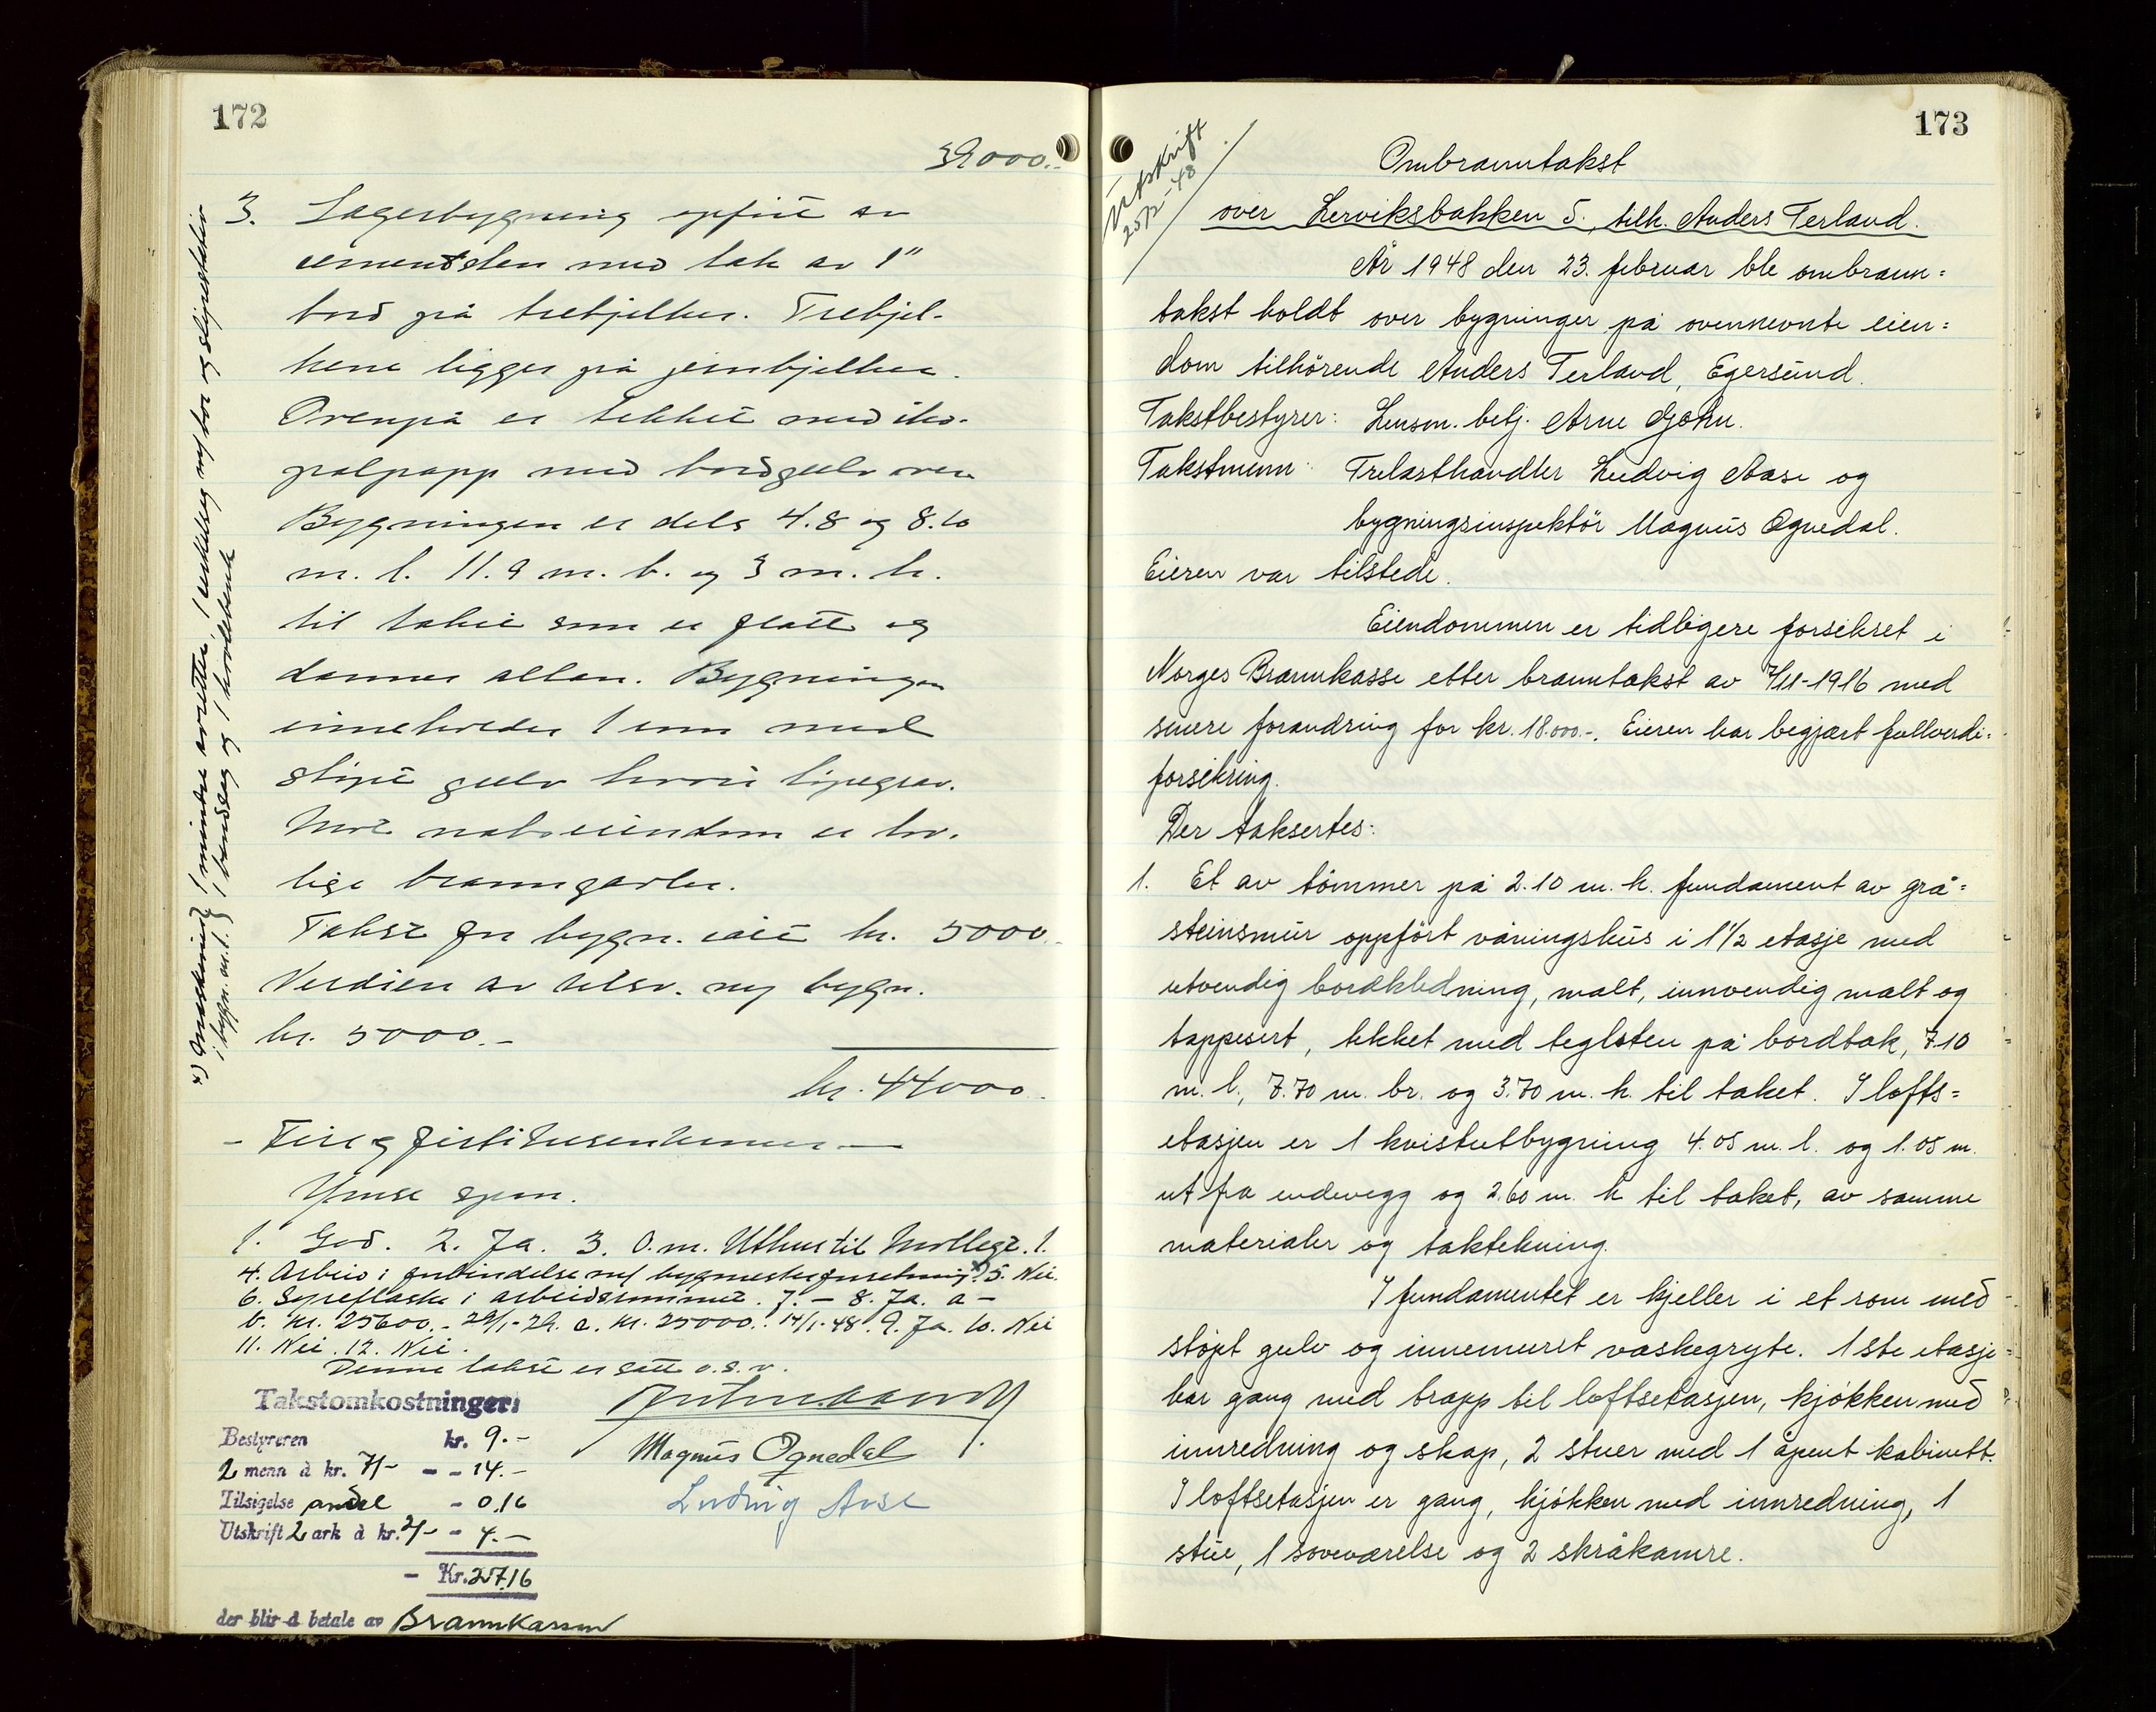 172
39000.-
3. Lagerbygning opført av
cementsten med tak av 1"
bord på trebjelker. Trebjel-
kene ligger på jernbjelker.
Ovenpå er tekket med iko-
palpapp med bordgulv over
Bygningen er dels 4.8 og 8.10
m. l. 11.9 m. b. og 3 m. h.
til taket som er flatt og
danner altan. Bygningen
inneholder 1 rom med
støpt gulv hvori
Mot naboeiendom er lov-
lige branngavler.
Takst for bygn. idit kr. 5000.-
Verdien av tilsv. ny bygn.
kr. 5000.-
kr. 44000.-
- Fire og førti tusen kroner -
Ymse spm.
1. God. 2. Ja. 3. O.m. Uthus til 1.
4. Arbeid i forbindelse m/ x) 5. Nei.
6. i arbeidsrummet. 7. - 8. Ja. a -
b. kr. 25600.- 29/1-29. c. kr. 25000.- 14/1-48. 9. Ja. 10. Nei
11. Nei. 12. Nei.
Denne takst er satt o.s.v.
Magnus Ognedal
Ludvig Aase
Takstomkostninger:
Bestyreren kr. 9.-
2 menn à kr. 7/- - - 14.-
Tilsigelse andel - 0.16
Utskrift 2 ark à kr. 2/- - 4.-
- Kr. 27.16
der blir å betale av Brannkassen
x) Maskineri i bygn. nr. 1. } 1 mindre avretter, 1
1 båndsag og 1 høvlebenk
173
Utskrift
25/2-48
Ombranntakst
over Lerviksbakken 5. tilh. Anders Terland.
År 1948 den 23. februar ble ombrann=
takst holdt over bygninger på ovennevnte eien=
dom tilhörende Anders Terland, Egersund.
Takstbestyrer: Lensm. betj. Arne Gjøhn.
Takstmenn: Trelasthandler Ludvig Aase og
bygningsinspektör Magnus Ognedal.
Eieren var tilstede.
Eiendommen er tidligere forsikret i
Norges Brannkasse etter branntakst av 7/11-1916 med
senere forandring for kr. 18.000.-. Eieren har begjært fullverdi=
forsikring.
Der taksertes:
1. Et av tömmer på 2.10 m. h. fundament av grå=
steinsmur oppfört våningshus i 1 1/2 etasje med
utvendig bordkledning, malt, innvendig malt og
tappesert, tekket med teglsten på bordtak, 7.10
m. l., 7.70 m. br. og 3.70 m. h. til taket. I lofts=
etasjen er 1 kvistutbygning 4.05 m. l. og 1.05 m.
ut fra endevegg og 2.60 m. h til taket, av samme
materialer og taktekning.
I fundamentet er kjeller i et rom med
støpt gulv og innemuret vaskegryte. 1ste etasje
har gang med trapp til loftsetasjen, kjökken med
innredning og skap, 2 stuer med 1 åpent kabinett.
I loftsetasjen er gang, kjökken med innredning, 1
stue, 1 soveværelse og 2 skråkamre.